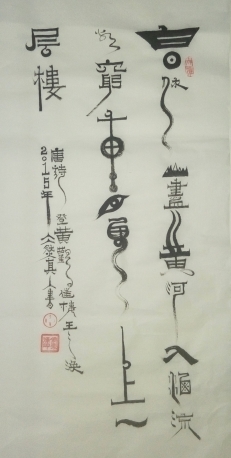 白日依山盡黄河入海流
欲窮千里目更上一
层樓
唐詩登黄鸛樓王之渙
2015年書